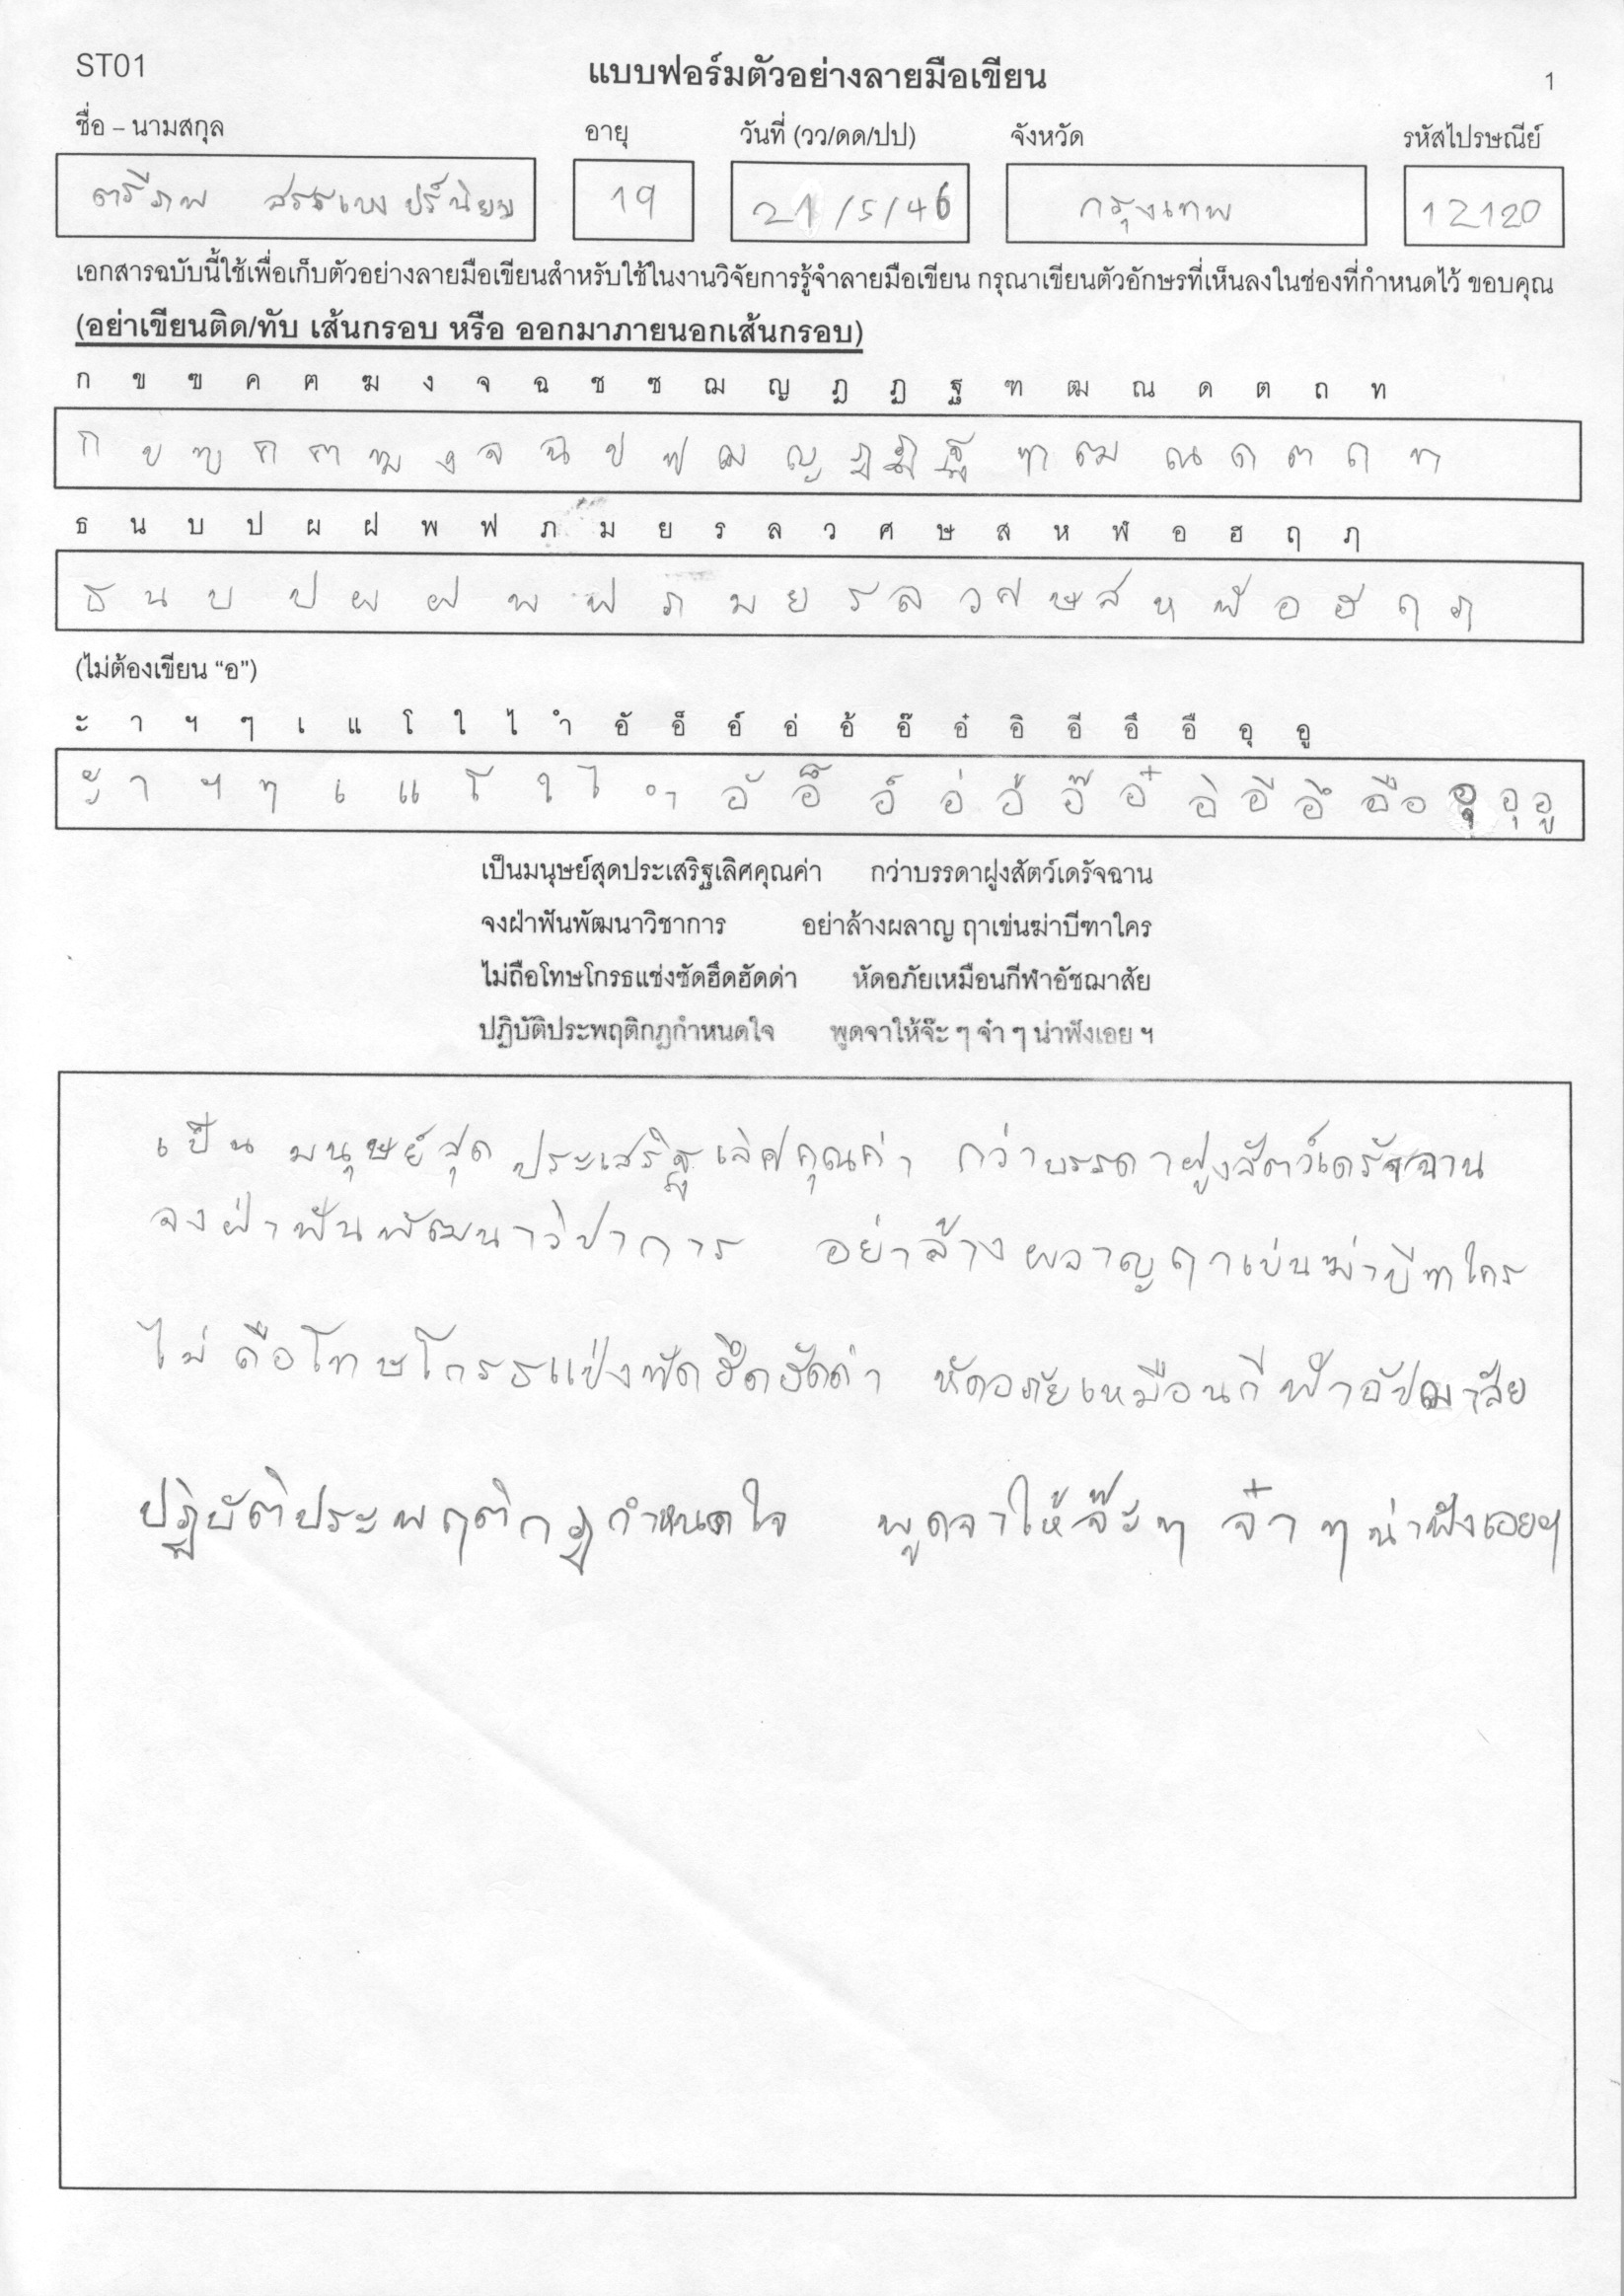 ST01
แบบฟอร์มตัวอย่างลายมือเขียน
1
ชื่อ – นามสกุล อายุ วันที่ (วว/ดด/ปป) จังหวัด รหัสไปรษณีย์
ตรีภพ 19 21/5/46 กรุงเทพ 12120
เอกสารฉบับนี้ใช้เพื่อเก็บตัวอย่างลายมือเขียนสำหรับใช้ในงานวิจัยการรู้จำลายมือเขียน กรุณาเขียนตัวอักษรที่เห็นลงในช่องที่กำหนดไว้ ขอบคุณ
(อย่าเขียนติด/ทับ เส้นกรอบ หรือ ออกมาภายนอกเส้นกรอบ)
ก ข ฃ ค ฅ ฆ ง จ ฉ ช ซ ฌ ญ ฎ ฏ ฐ ฑ ฒ ณ ด ต ถ ท
ก ข ฃ ค ฅ ฆ ง จ ฉ ช ซ ฌ ญ ฎ ฏ ฐ ฑ ฒ ณ ด ต ถ ท
ธ น บ ป ผ ฝ พ ฟ ภ ม ย ร ล ว ศ ษ ส ห ฬ อ ฮ ฤ ภ
ธ น บ ป ผ ฝ พ ฟ ภ ม ย ร ล ว ศ ษ ส ห ฬ อ ฮ ฤ ภ
(ไม่ต้องเขียน “อ”)
ะ า ฯ ๆ เ แ โ ใ ไ ำ อั อ็ อ์ อ่ อ้ อ๊ อ๋ อิ อี อึ อื อุ อู
ะ า ฯ ๆ เ แ โ ใ ไ ำ อั อ็ อ์ อ่ อ้ อ๊ อ๋ อิ อี อึ อือ อุ อุ อู
เป็นมนุษย์สุดประเสริฐเลิศคุณค่า กว่าบรรดาฝูงสัตว์เดรัจฉาน
จงฝ่าฟันพัฒนาวิชาการ อย่าล้างผลาญ ฤาเข่นฆ่าบีฑาใคร
ไม่ถือโทษโกรธแช่งซัดฮึดฮัดด่า หัดอภัยเหมือนกีฬาอัชฌาสัย
ปฏิบัติประพฤติกฎกำหนดใจ พูดจาให้จ๊ะ ๆ จ๋า ๆ น่าฟังเอย ฯ
เป็นมนุษย์สุดประเสริฐเลิศคุณค่า กว่าบรรดาฝูงสัตว์เดรัจฉาน
จงฝ่าฟันพัฒนาวิชาการ อย่าล้างผลาญฤาเข่นฆ่าบีฑาใคร
ไม่ถือโทษโกรธแช่งซัดฮึดฮัดด่า หัดอภัยเหมือนกีฬาอัชฌาสัย
ปฏิบัติประพฤติกฎกำหนดใจ พูดจาให้จ๊ะๆ จ๋าๆน่าฟังเอยฯ